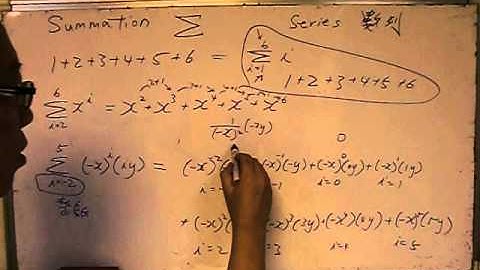 Summation Σ Series 數列
1+2+3+4+5+6 = Σ_{i=1}^{6} i
1+2+3+4+5+6
Σ_{i=2}^{6} x^i = x^2+x^3+x^4+x^5+x^6
1/(-x)^2 (-2y)
0
Σ_{i=-2}^{5} (-x)^i(iy) = (-x)^-2 (-x)^-1(-y)+(-x)^0(0y)+(-x)^1(y)
i=0 i=1
+(-x)^2(2y) (-x)^3(3y)+(-x)^4(4y)+(-x)^5(5y)
i=2 =3 i=4 i=5